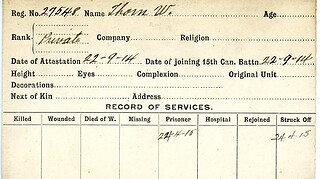 Reg. No. 27548 Name Thorn W. Age
Rank Private Company Religion
Date of Attestation 22-9-14 Date of joining 15th Can. Battn 22-9-14
Height Eyes Complexion Original Unit
Decorations
Next of Kin Address
RECORD OF SERVICES.
Killed Wounded Died of W. Missing Prisoner Hospital Rejoined Struck Off
24-4-15 24-4-15